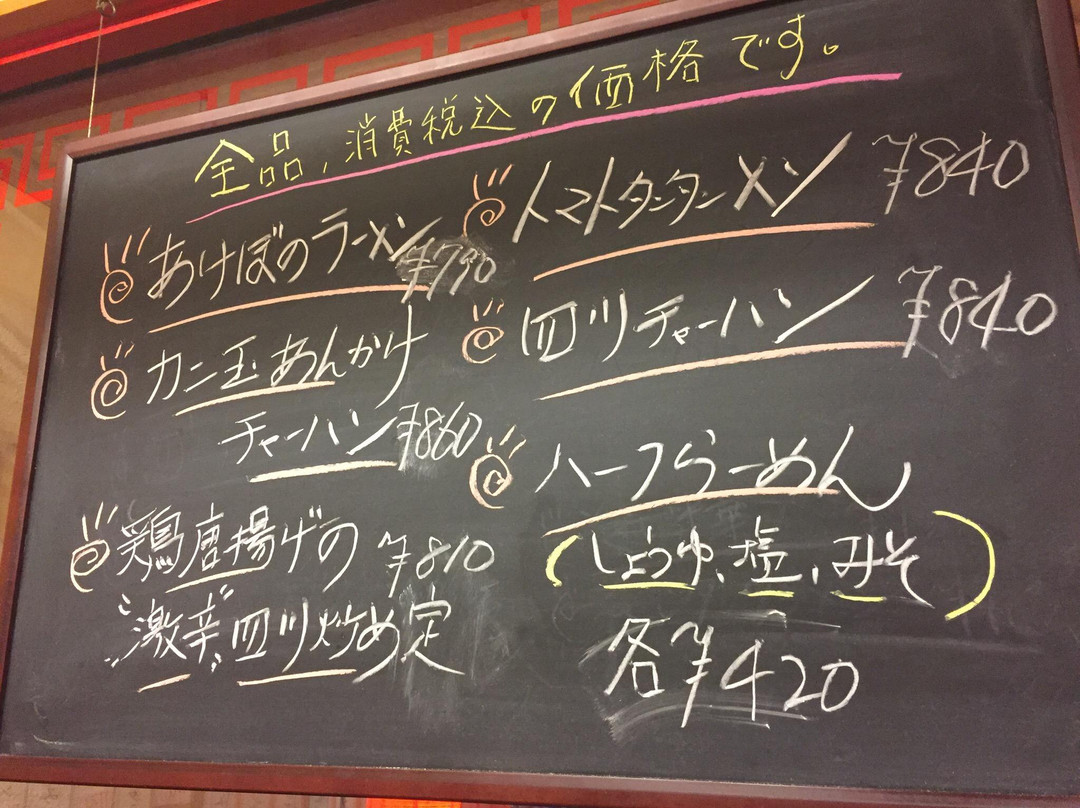 全品、消費税込の価格です。
あけぼのラーメン ¥790
カニ玉あんかけ
チャーハン ¥860
鶏唐揚げの ¥810
"激辛"四川炒め定
トマトタンタンメン ¥840
四川チャーハン ¥840
ハーフらーめん
(しょうゆ、塩、みそ)
各¥420